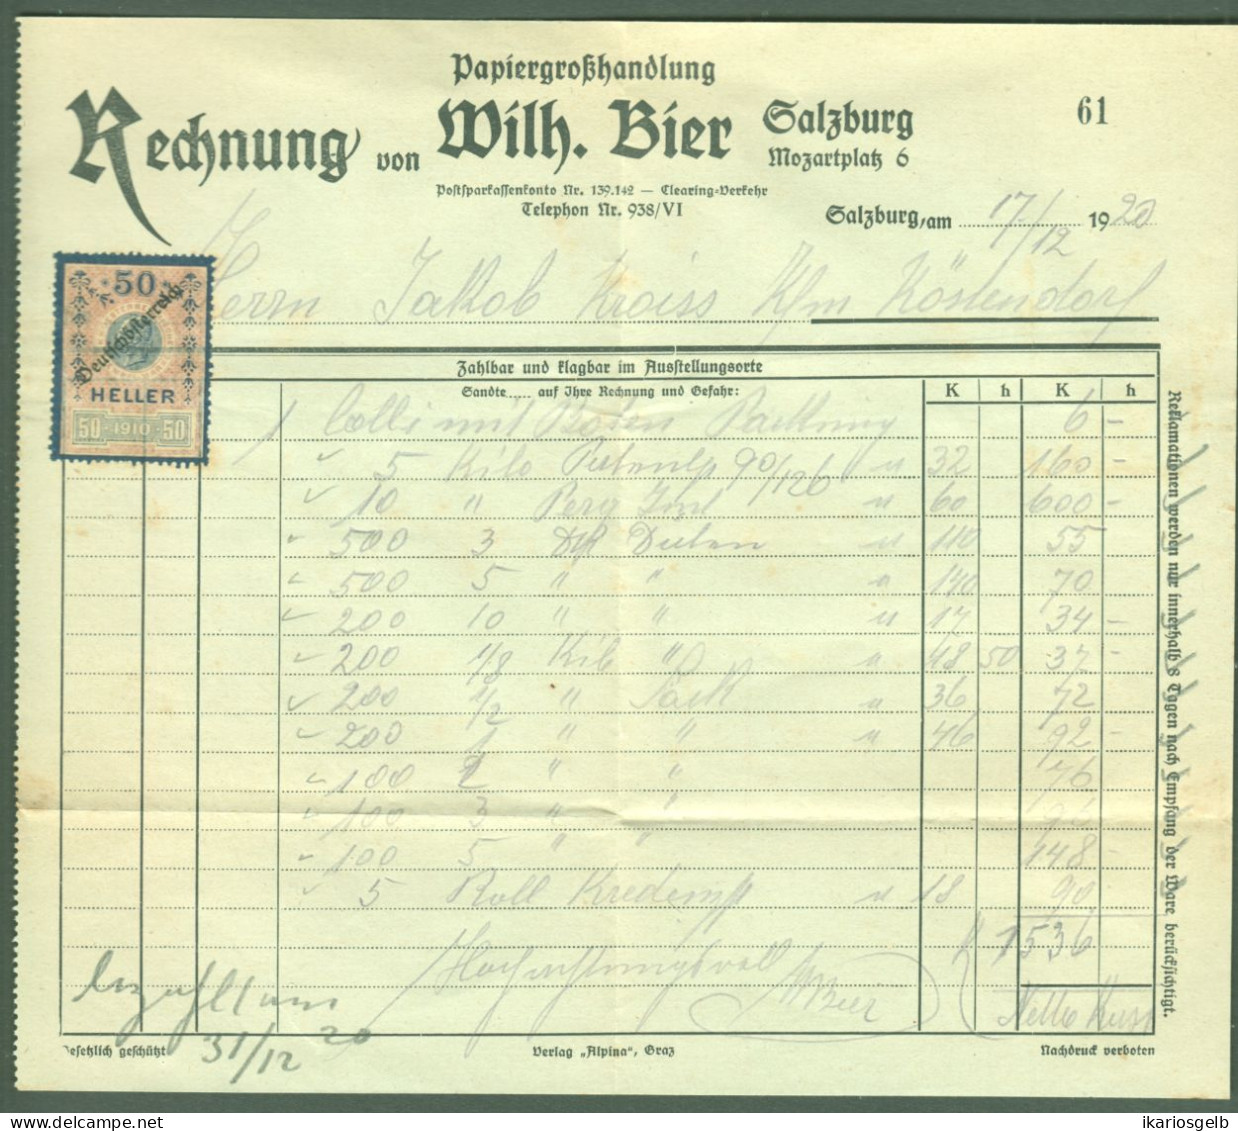 Papiergroßhandlung
Rechnung von Wilh. Bier Salzburg
Mozartplatz 6
61
Postsparkassenkonto Nr. 139.142 — Clearing-Verkehr
Telephon Nr. 938/VI
Salzburg, am 17/12 1920
Herrn Jakob Kroiss Kfm Köstendorf
50
Deutschösterreich
HELLER
50 · 1910 · 50
Zahlbar und klagbar im Ausstellungsorte
Sandte...... auf Ihre Rechnung und Gefahr: K h K h
1 Colli mit Boten Packung 6 –
5 Kilo 90/126 a 32 160 –
10 " a 60 600 –
500 3 a 110 55
500 5 " " a 140 70
200 10 " " a 17 34 –
200 1/8 Kilo " a 18 50 37 –
200 1/2 " Sack a 36 72
200 1 " " a 46 92 –
100 2 " " 76
100 3 " "
100 5 " " 148 –
5 Roll a 18 90
K 1536
Hochachtungsvoll
WBier
Netto
bezahlt am
31/12 20
Reklamationen werden nur innerhalb 8 Tagen nach Empfang der Ware berücksichtigt.
Gesetzlich geschützt
Verlag „Alpina", Graz
Nachdruck verboten
ikariosgelb